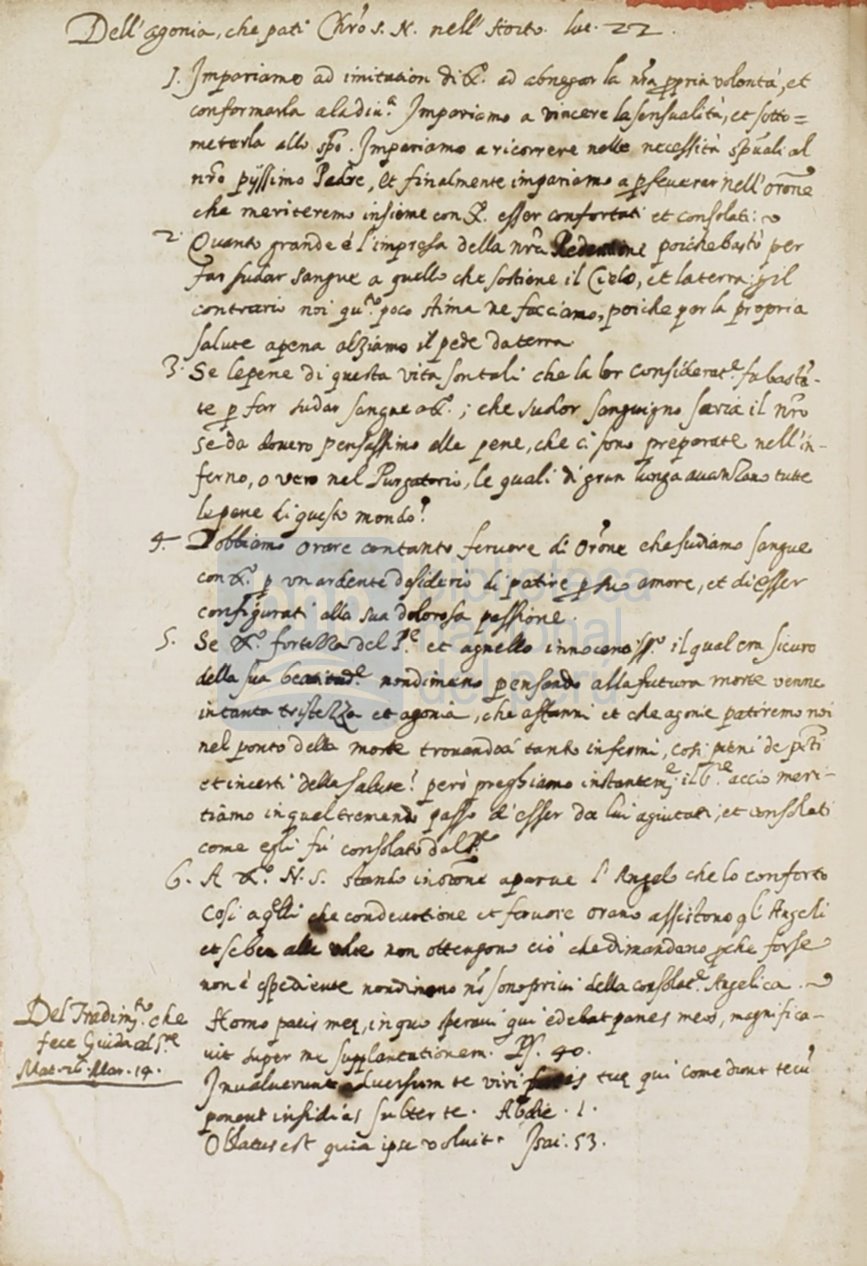 Dell'agonia, che pati Chr̃o S. N. nell'Horto. luc. 22.
1. Impariamo ad imitation di X.º ad abnegar la nr̃a ꝓpria volontà, et
conformarla a la diu.ª Impariamo a vincere la sensualità, et sotto=
meterla allo spõ. Impariamo a ricorrere nelle necessità spũali al
nr̃o pijssimo Padre, et finalmente impariamo a ꝑseuerar nell'orõne
che meriteremo insieme con X.º esser confortati et consolati:
2. Quanto grande é l'impresa della nr̃a Redentione poiche bastò per
far sudar sangue a quello che sostiene il Cielo, et la terra: ꝑ il
contrario noi qu.to poco stima ne facciamo, poiche per la propria
salute apena alziamo il pede da terra.
3. Se le pene di questa vita son tali che la lor considerat.e fu bastã-
te ꝑ far sudar sangue a X.º; che sudor sanguigno saria il nr̃o
se da douero pensassimo alle pene, che ci sono preparate nell'in-
ferno, o vero nel Purgatorio, le quali di gran lunga auanzano tutte
le pene di questo mondo?
4. Dobbiamo orare con tanto feruore di orõne che sudiamo sangue
con X.º ꝑ vn ardente desiderio di patire ꝑ suo amore, et di esser
configurati alla sua dolorosa passione.
5. Se X.º fortezza del P.e et agnello innocentiss.º il qual era sicuro
della sua beatitud.e nondimeno pensando alla futura morte venne
in tanta tristezza et agonia, che affanni et che agonie patiremo noi
nel ponto della morte trouandoci tanto infermi, cosi pieni de pctĩ
et incerti della salute? però preghiamo instantem.e il P.e accio meri-
tiamo in quel tremendo passo d'esser da lui agiutati, et consolati
come egli fu consolato dal P.e
6. A X.º N. S. stando in orõne aparue l'Angelo che lo conforto
Cosi a q̃lli che con deuotione et feruore orano assistono gl'Angeli
et se ben alle volte non ottengono ciò che dimandano ꝑche forse
non é espediente nondimeno nõ sono priui della consolat.e Angelica.
Del Tradim.to che
fece Giuda al S.re
Mat. 26. Mar. 14.
Homo pacis meę, in quo speraui qui edebat panes meos, magnifica-
uit super me supplantationem. Ps. 40.
Inualuerunt aduersum te viri pacis tuę qui comedunt tecũ
ponent insidias subter te. Abdie. 1.
Oblatus est quia ipse voluit. Isai. 53.
biblioteca
nacional
del perú